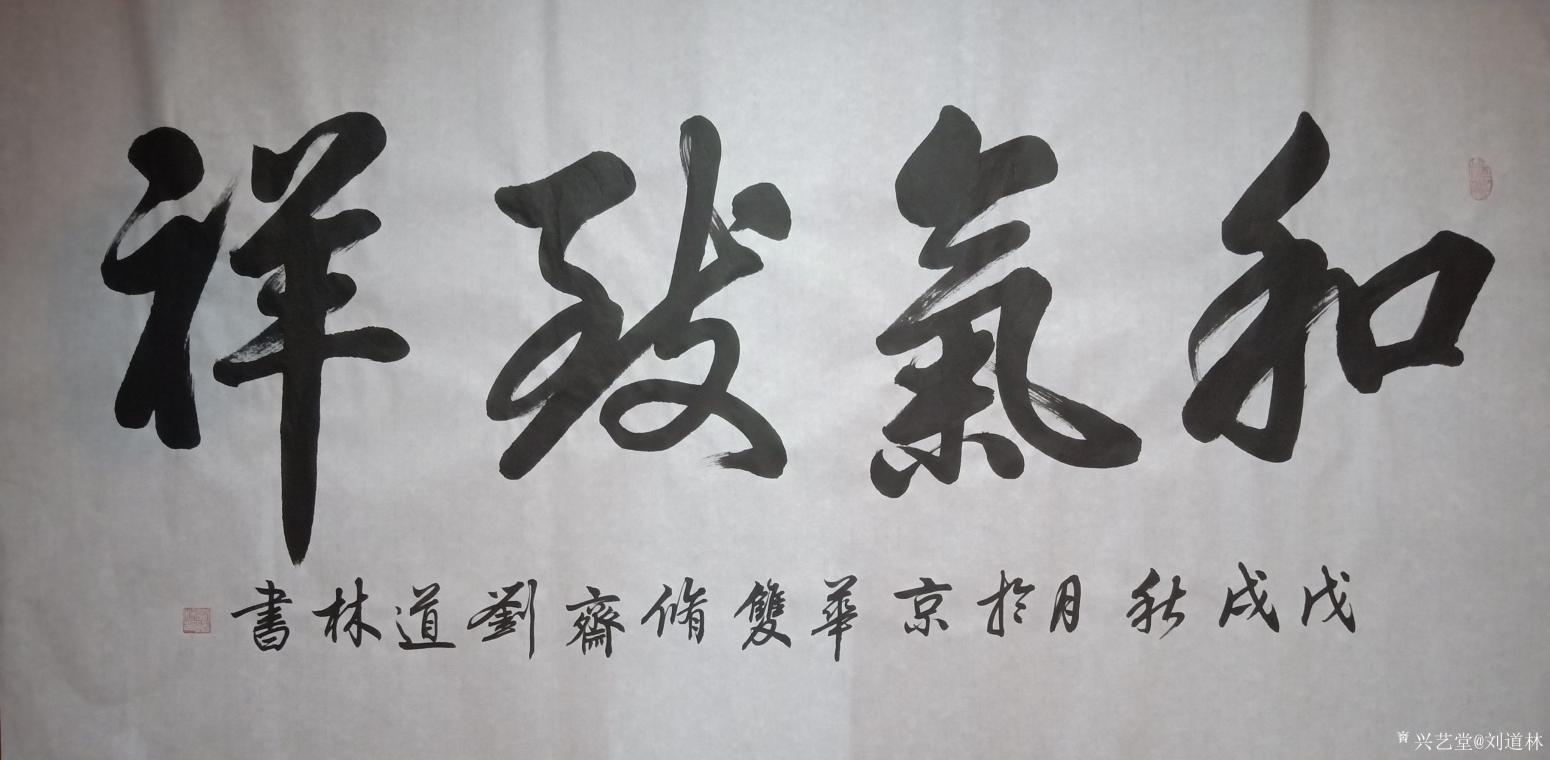 和氣致祥
戊戌秋月於京華雙脩齋劉道林書
兴艺堂@刘道林